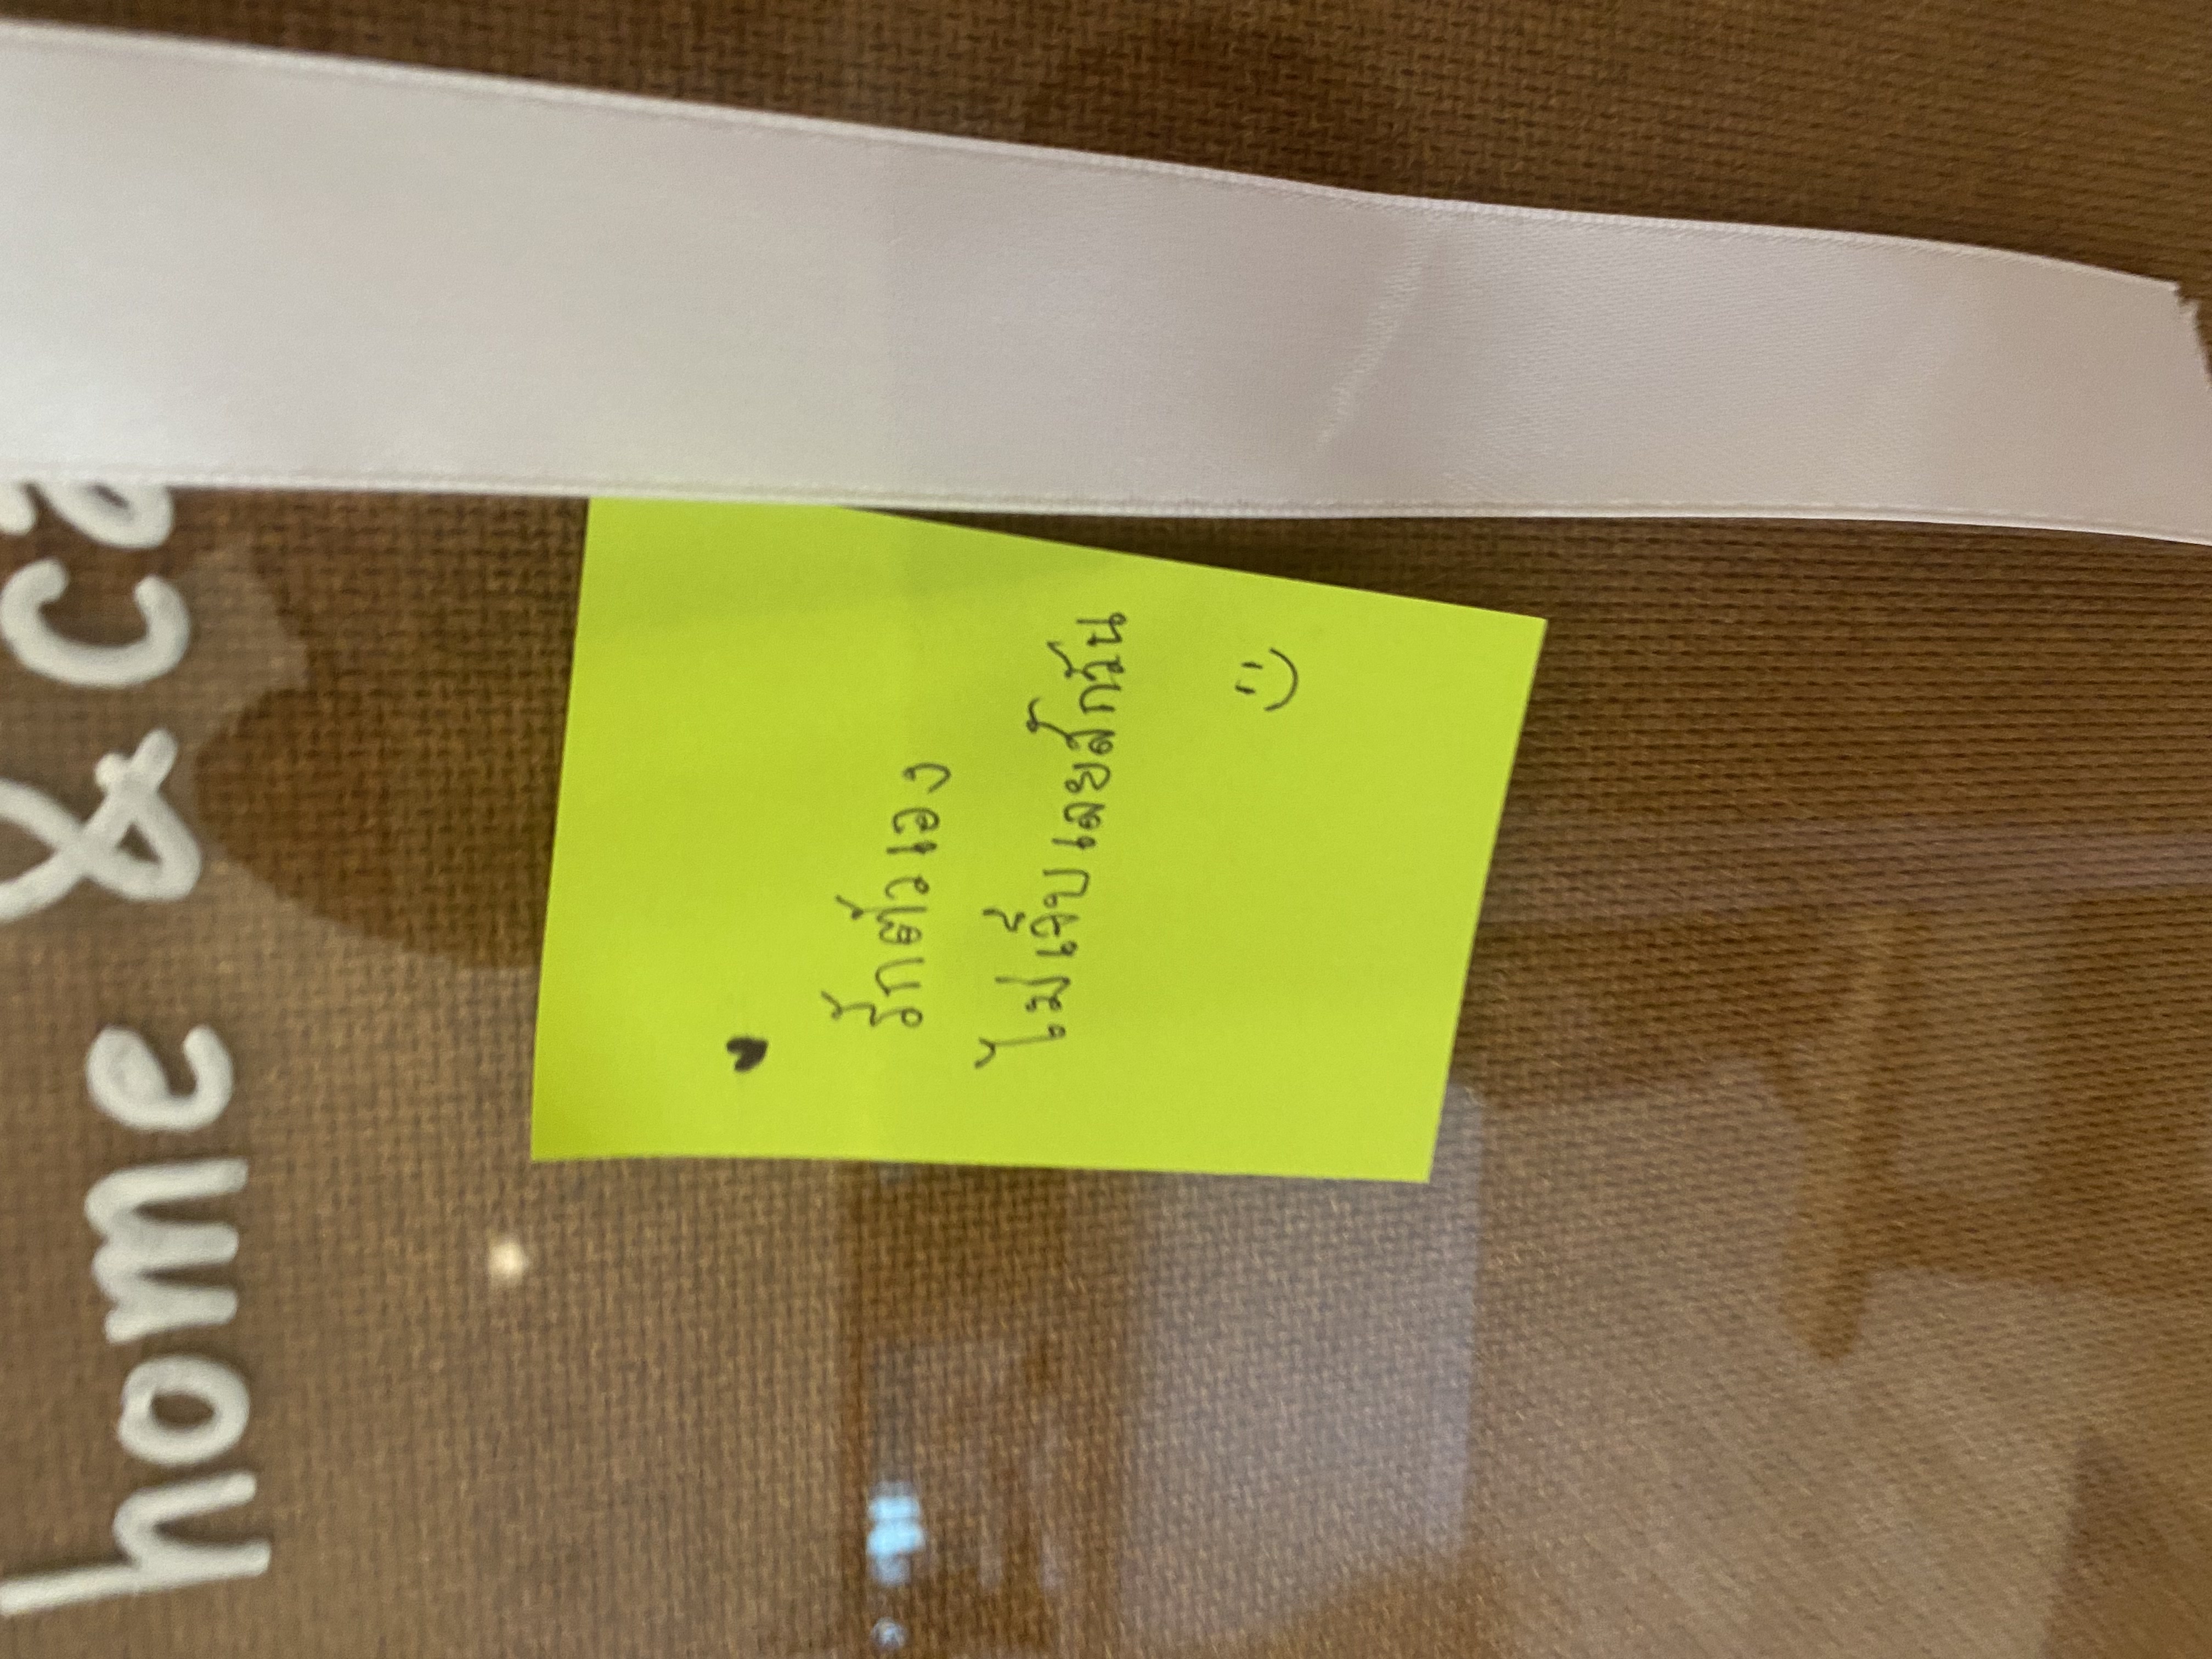 home & ca
รักตัวเอง
ไม่เจ็บเลยสักวัน